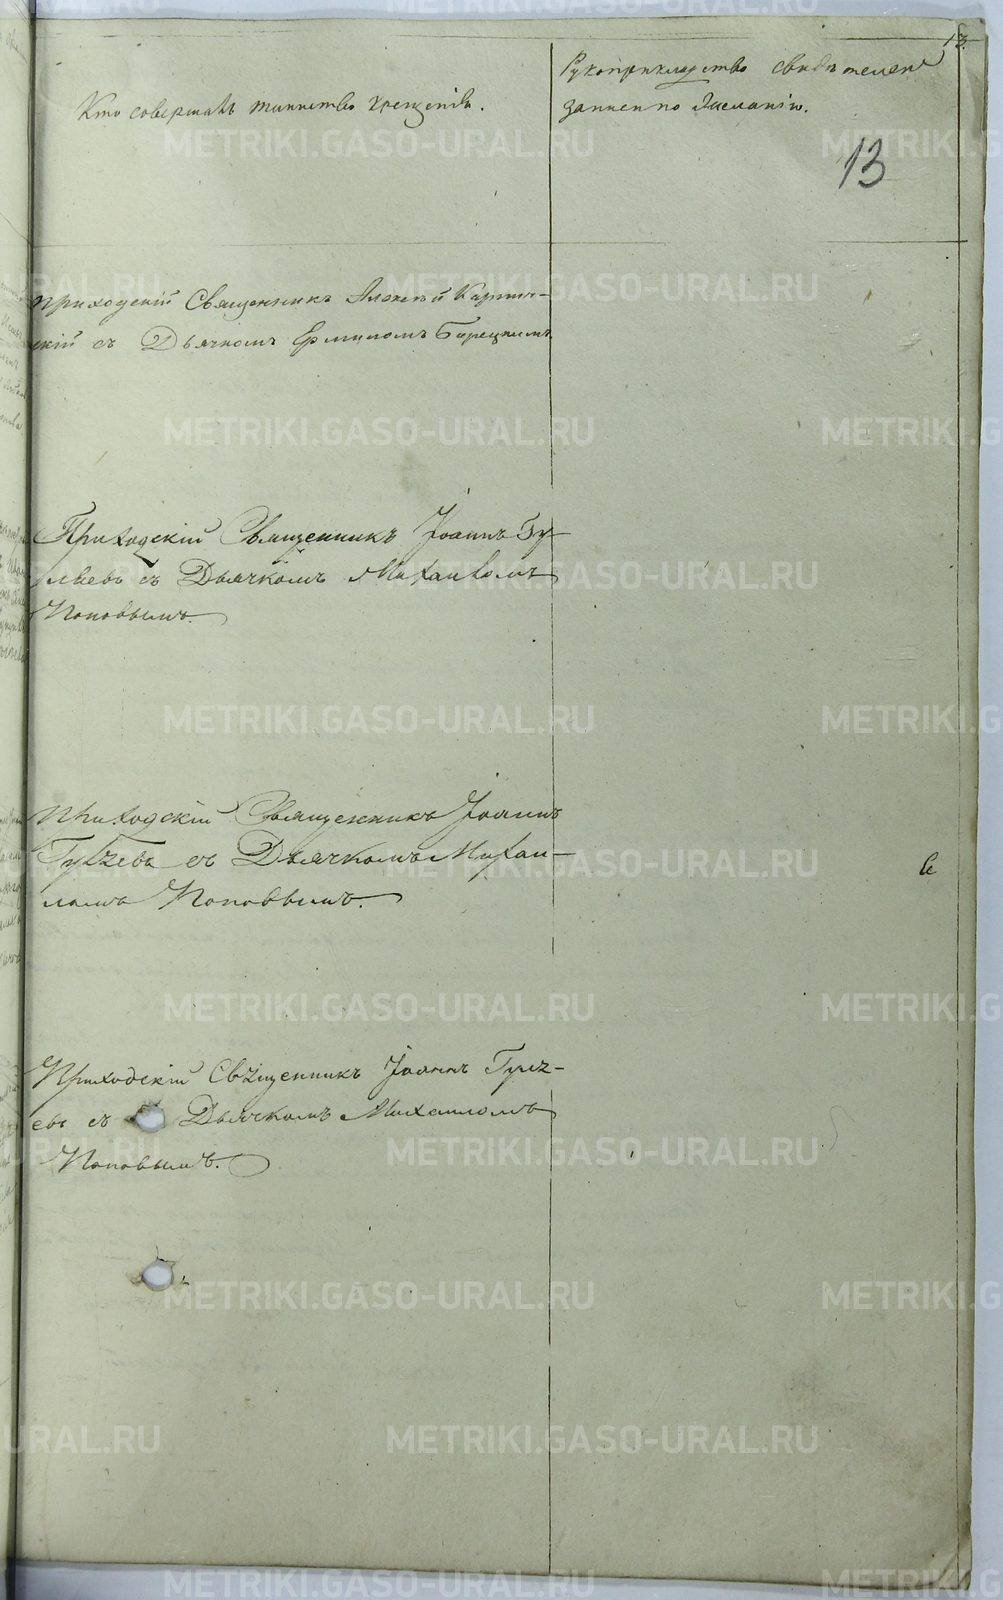 13.
Кто совершалъ таинство крещенія.
Рукоприкладство свидѣтелей
записи по желанію.
13
Приходскій Священникъ Алексѣй
скій съ Дьячкомъ Ермиломъ Борецкимъ.
Приходскій Священникъ Іоаннъ Гу-
ляевъ съ Дьячкомъ Михаиломъ
Поповымъ.
Приходскій Священникъ Іоаннъ
Гуляевъ съ Дьячкомъ Михаи-
ломъ Поповымъ.
Приходскій Священникъ Іоаннъ Гуля-
евъ съ Дьячкомъ Михаиломъ
Поповымъ.
METRIKI.GASO-URAL.RU